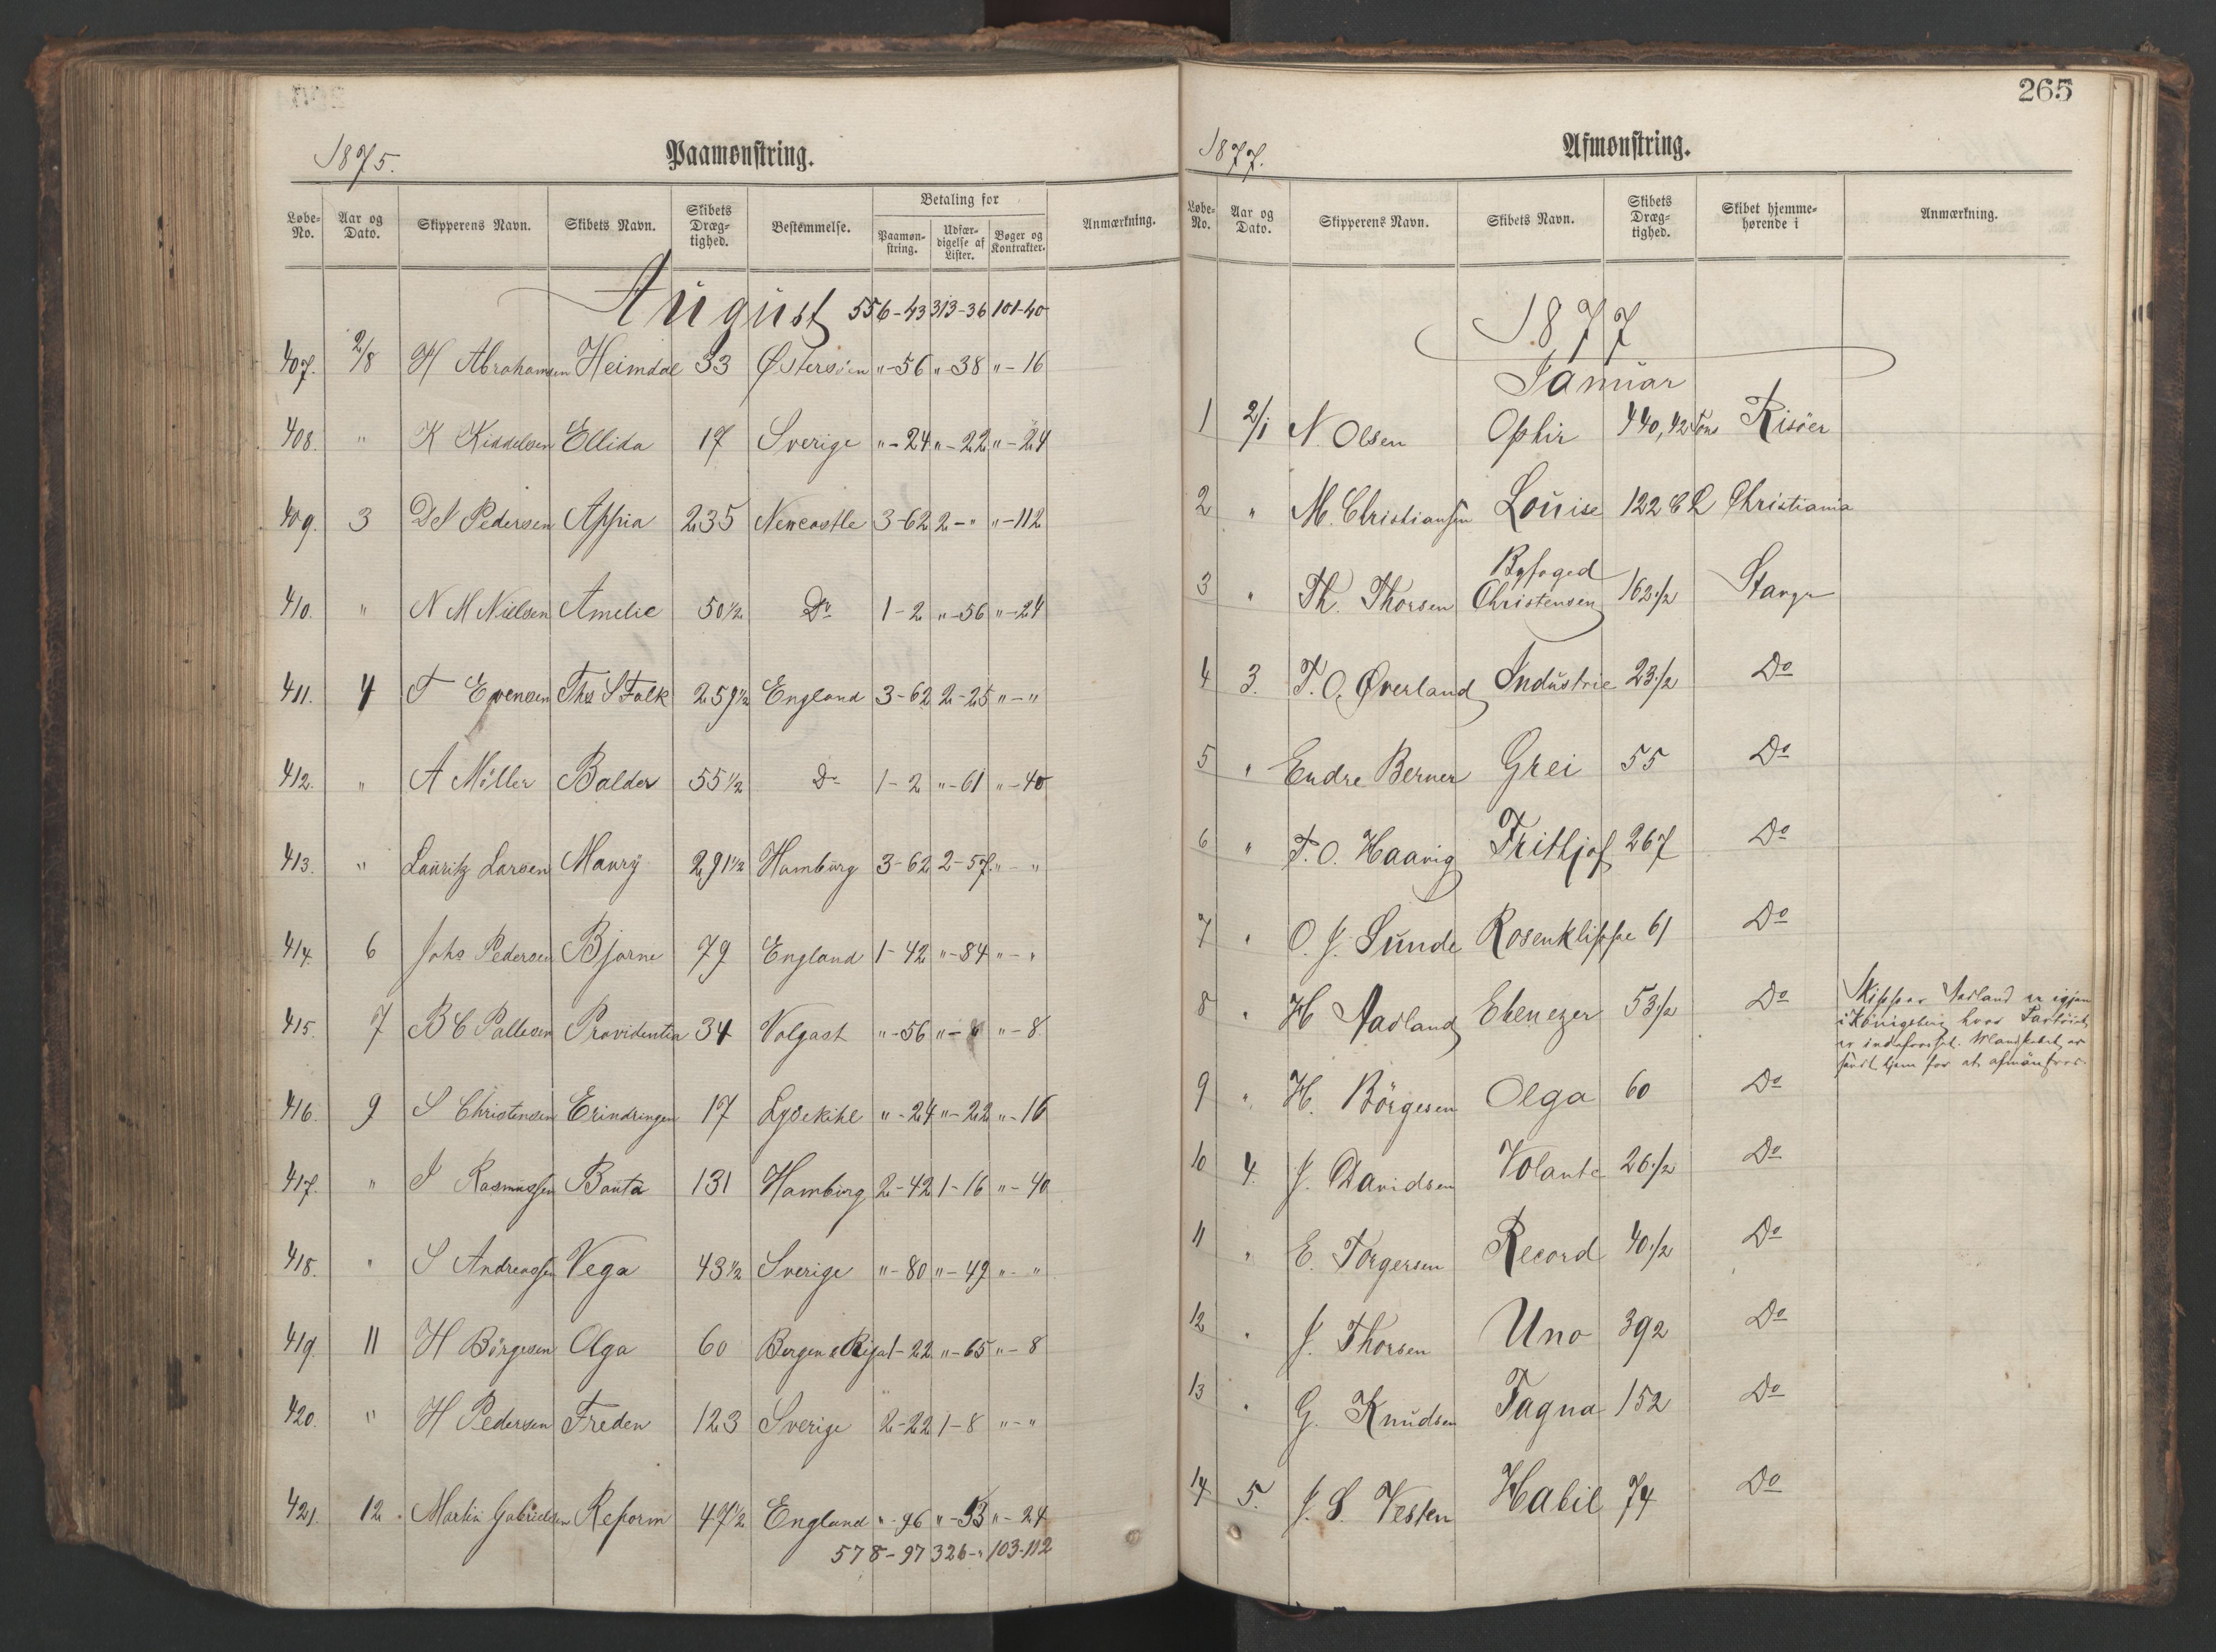 1875.
Paamønstring.
Løbe-No. Aar og Dato. Skipperens Navn. Skibets Navn. Skibets Dræg-tighed. Bestemmelse. Betaling for Paamøn-string. Udfær-digelse af Lister. Bøger og Kontrakter. Anmærkning.
August 556-43 313-36 101-40
407. 2/8 H Abrahamsen Heimdal 33 Østersöen "-56 "-38 "-16
408. " K Kiddelsen Ellida 17 Sverige "-24 "-22 "-24
409. 3 Pedersen Appia 235 Newcastle 3-62 2-" "-112
410. " N M Nielsen Amelie 50 1/2 Do 1-2 "-56 "-24
411. 4 T Evensen Ths S Falk 259 1/2 England 3-62 2-25 "-"
412. " A Möller Balder 55 1/2 Do 1-2 "-61 "-40
413. " Lauritz Larsen Maury 291 1/2 Hamburg 3-62 2-57. "-"
414. 6 Johs Pedersen Bjarne 79 England 1-42 "-84 "-"
415. 7 B C Pallesen Providentia 34 Volgast "-56 "- "-8
416. 9 S Christensen Erindringen 17 Lysekihl "-24 "-22 "-16
417. " J Rasmussen Bauta 131 Hamburg 2-42 1-16 "-40
418. " S Andreassen Vega 43 1/2 Sverige "-80 "-49 "-"
419. 11 H Börgesen Olga 60 Bergen & Riga 1-22 "-65 "-8
420. " H Pedersen Freden 123 Sverige 2-22 1-8 "-"
421. 12. Martin Gabrielsen Reform 47 1/2 England "-96 "-53 "-24
578-97 326-" 103-112
265
1877.
Afmønstring.
Løbe-No. Aar og Dato. Skipperens Navn. Skibets Navn. Skibets Dræg-tighed. Skibet hjemme-hørende i Anmærkning.
1877
Januar
1 2/1 N. Olsen Ophir 440,42 Tons Risöer
2 " M. Christiansen Louise 122 C L Christiania
3 " Th. Thorsen Byfoged Christensen 162 1/2 Stavgr
4 3. T. O. Øverland Industrie 23 1/2 Do
5 " Endre Berner Grei 55 Do
6 " T. O. Haavig Frithjof 267 Do
7 " O. J. Sunde Rosenklippe 61 Do
8 " H Aadland Ebenezer 53 1/2 Do Skipper Aadland er igjen
i Königsberg hvor Fartöiet
er indefrosset. Mandskabet er
sendt hjem for at afmönstres.
9 " H. Börgesen Olga 60 Do
10 4. J. Davidsen Volante 26 1/2 Do
11 " E. Torgersen Record 40 1/2 Do
12 " J. Thorsen Uno 392 Do
13 " G. Knudsen Fagna 152 Do
14 5. J. S. Vesten Habil 74 Do